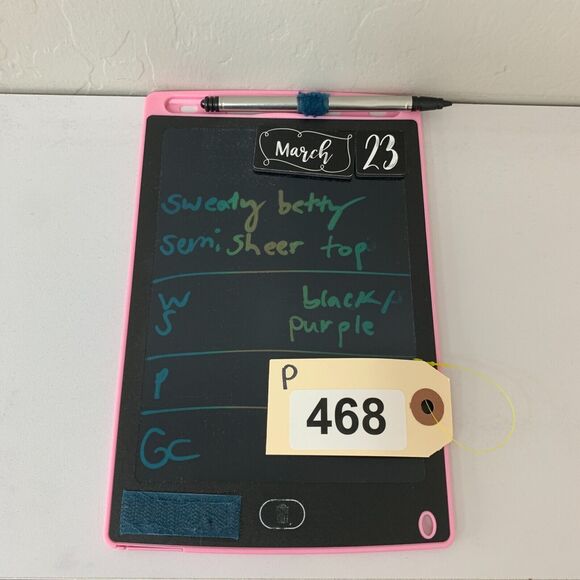 March 23
sweaty betty
semi sheer top
W black/
S purple
P
P
468
GC